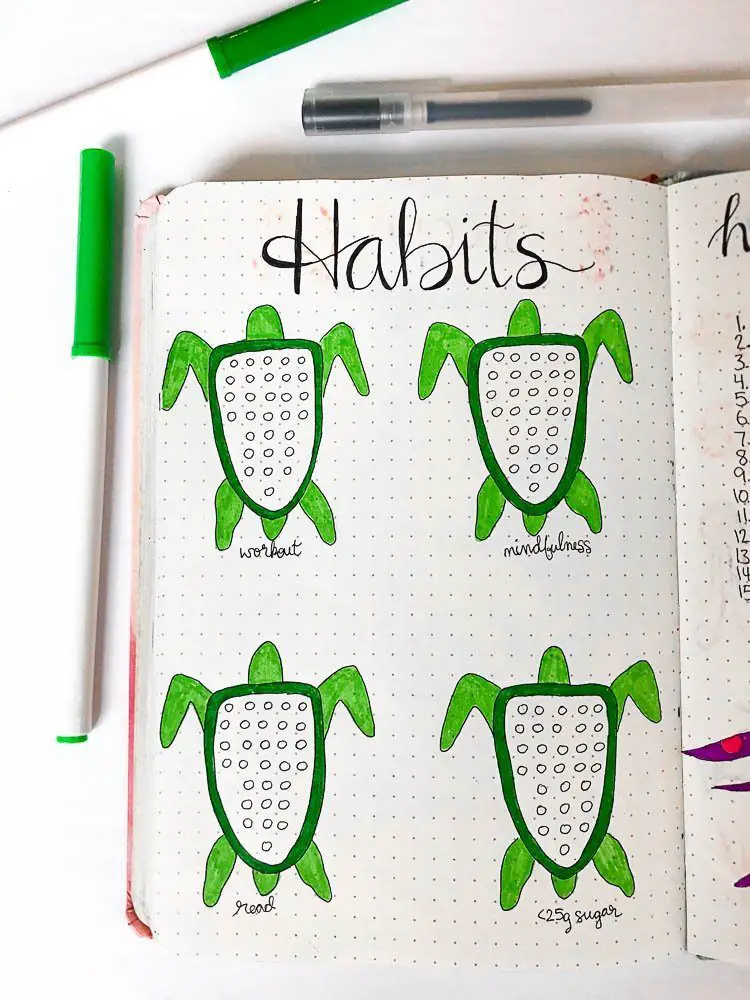 Habits
workout
mindfulness
read
<25g sugar
h
1.
2.
3.
4.
5.
6.
7.
8.
9.
10
11.
12
13
14
15